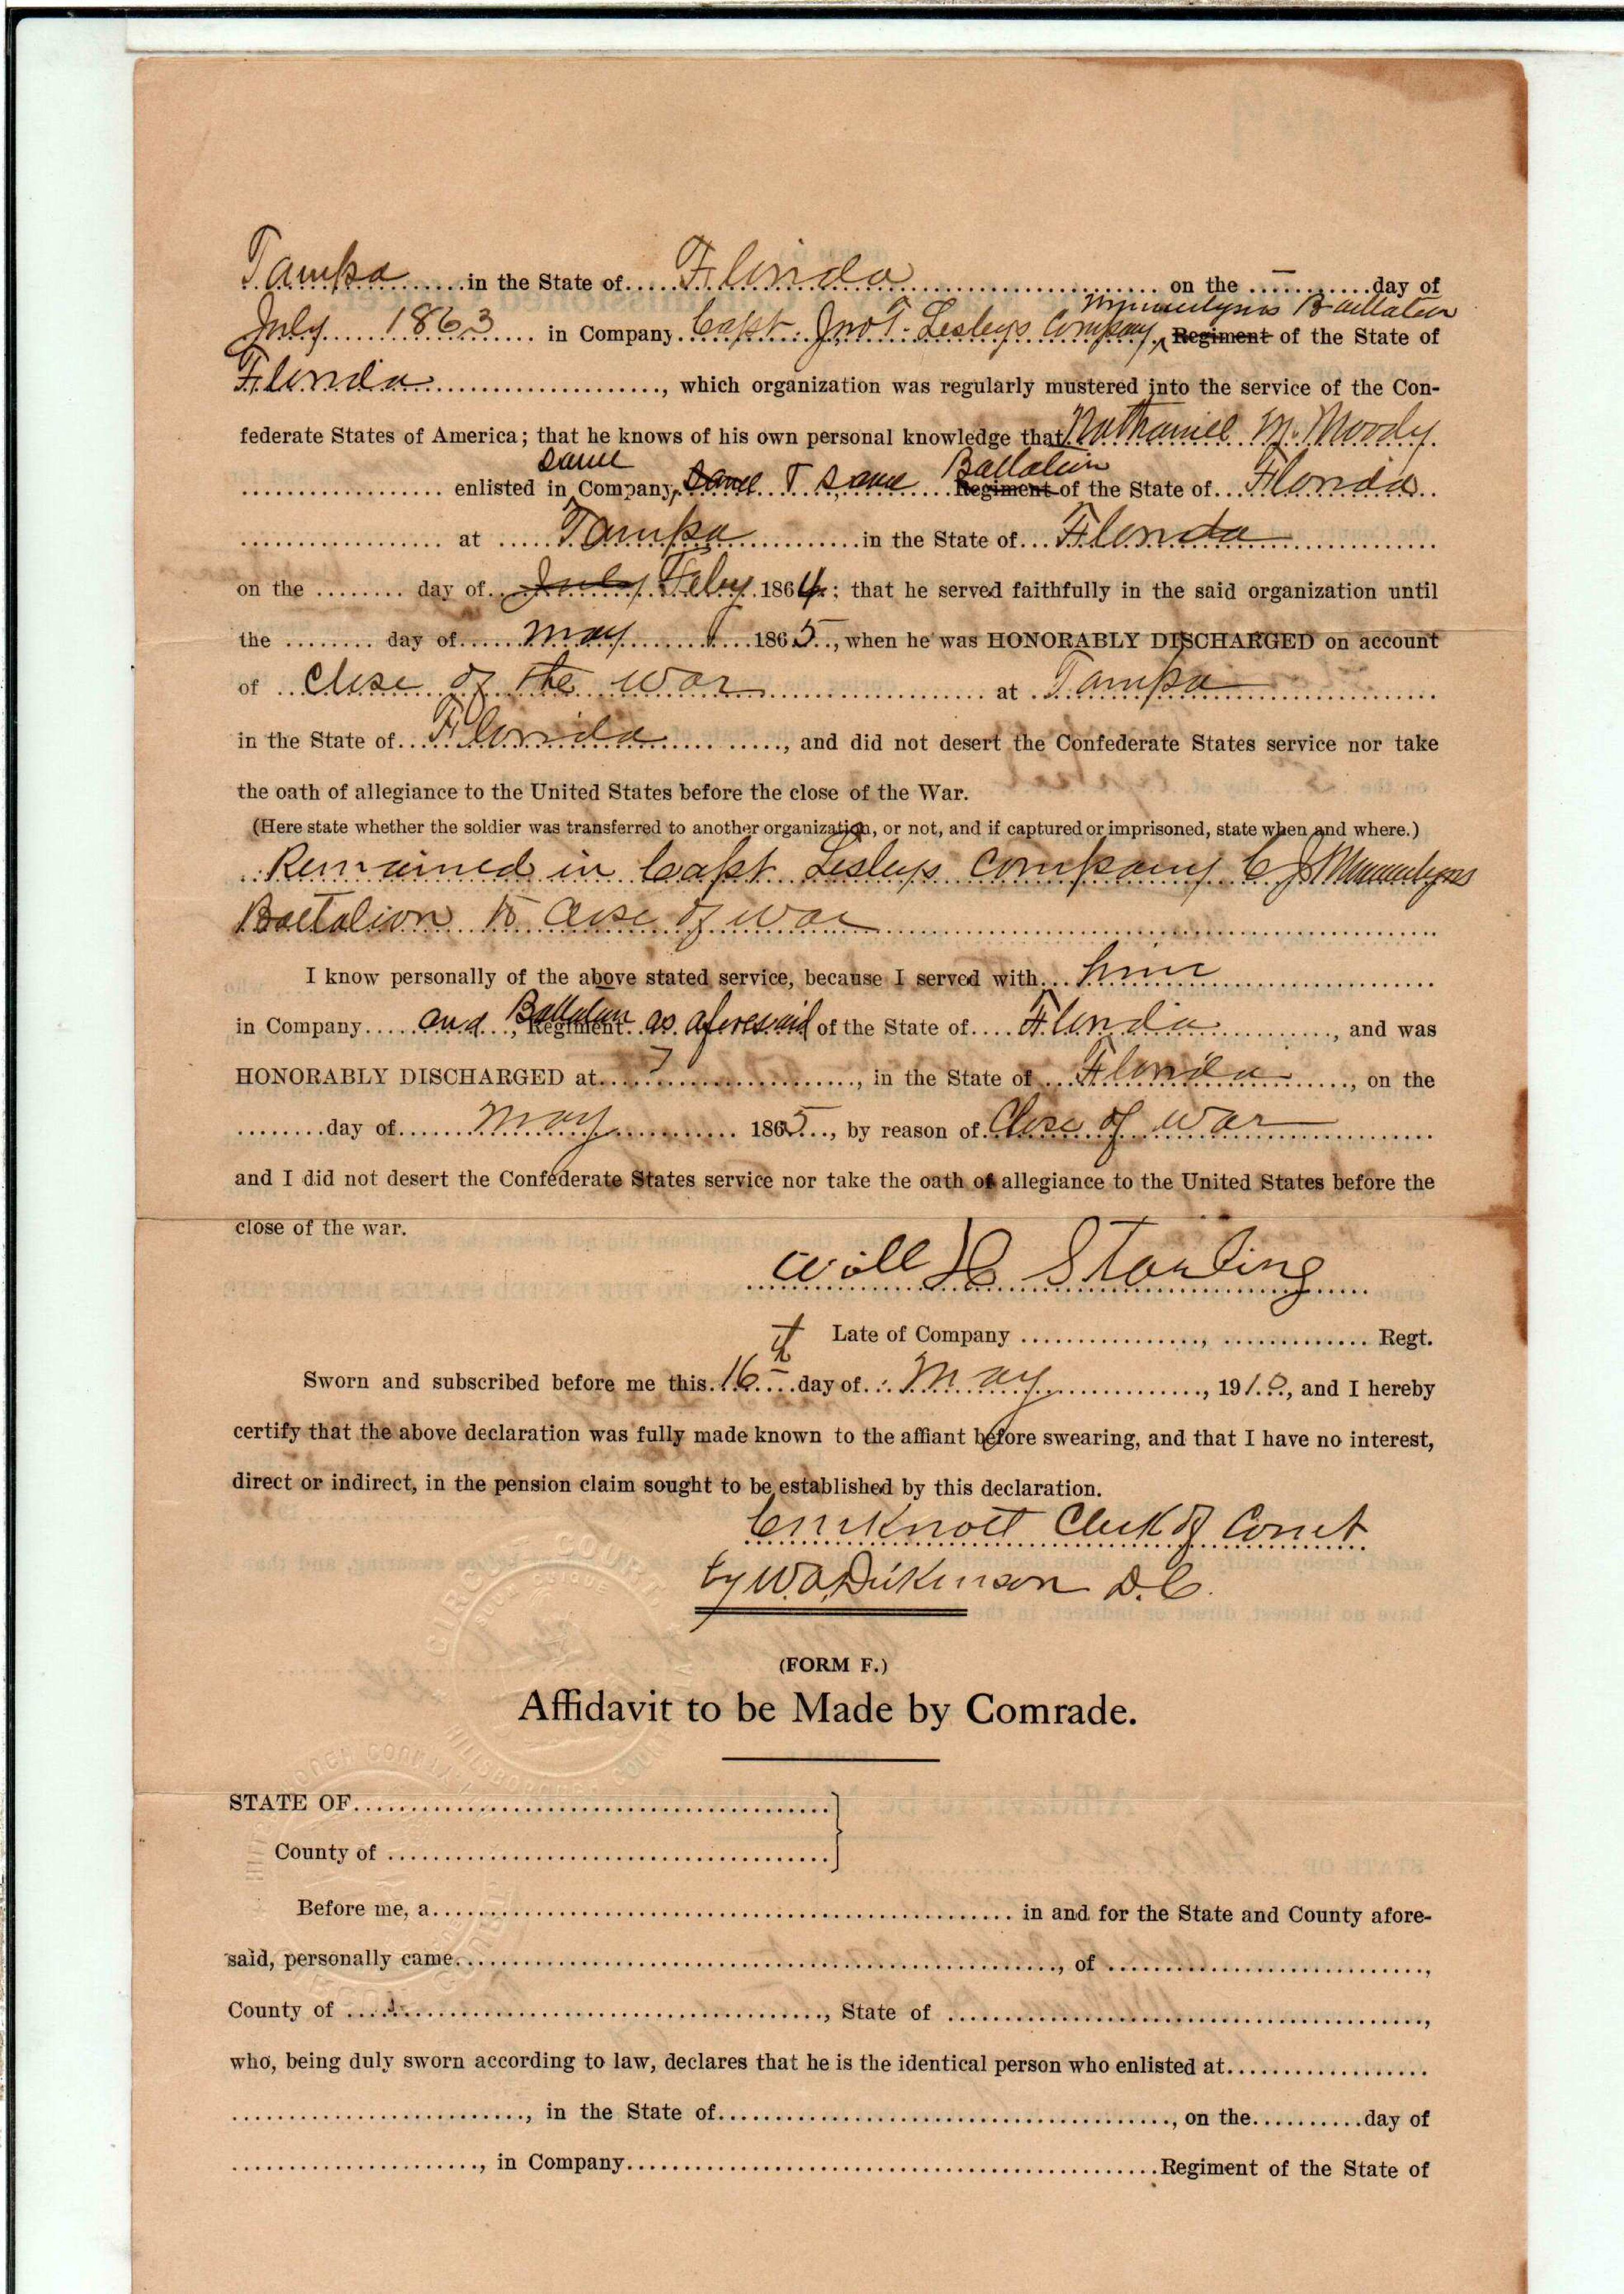 Tampa in the State of Florida on the — day of
Munnerlyns Battalion
July 1863 in Company Capt. Jno T. Lesleys Company, Regiment of the State of
Florida, which organization was regularly mustered into the service of the Con-
federate States of America; that he knows of his own personal knowledge that Nathaniel M. Moody
same Battalion
enlisted in Company, Same & same Regiment of the State of Florida
at Tampa in the State of Florida
on the day of July Feby 1864; that he served faithfully in the said organization until
the day of May 1865, when he was HONORABLY DISCHARGED on account
of Close of the war at Tampa
in the State of Florida, and did not desert the Confederate States service nor take
the oath of allegiance to the United States before the close of the War.
(Here state whether the soldier was transferred to another organization, or not, and if captured or imprisoned, state when and where.)
Remained in Capt Lesleys Company C J Munnerlyns
Battalion to close of war
I know personally of the above stated service, because I served with him
Battalion
in Company and, Regiment as aforesaid of the State of Florida, and was
HONORABLY DISCHARGED at, in the State of Florida, on the
day of May 1865, by reason of Close of war
and I did not desert the Confederate States service nor take the oath of allegiance to the United States before the
close of the war.
Will H Starling
Late of Company, Regt.
Sworn and subscribed before me this 16th day of May, 1910, and I hereby
certify that the above declaration was fully made known to the affiant before swearing, and that I have no interest,
direct or indirect, in the pension claim sought to be established by this declaration.
C M Knott Clerk of Court
by W.A. Dickenson D.C.
CIRCUIT COURT
HILLSBOROUGH COUNTY
(FORM F.)
Affidavit to be Made by Comrade.
STATE OF
County of
Before me, a in and for the State and County afore-
said, personally came, of,
County of, State of,
who, being duly sworn according to law, declares that he is the identical person who enlisted at
, in the State of, on the day of
, in Company Regiment of the State of